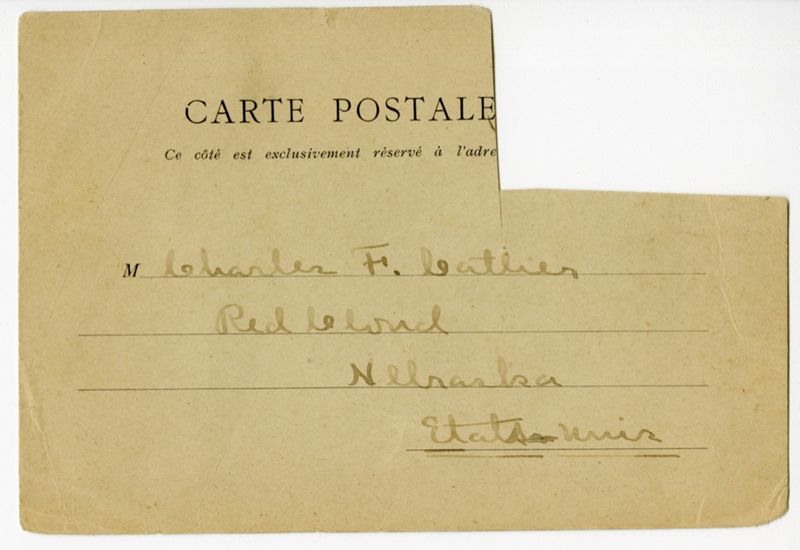 CARTE POSTALE
Ce côté est exclusivement réservé à l'adre
M Charles F. Cather
Red Cloud
Nebraska
Etats-Unis